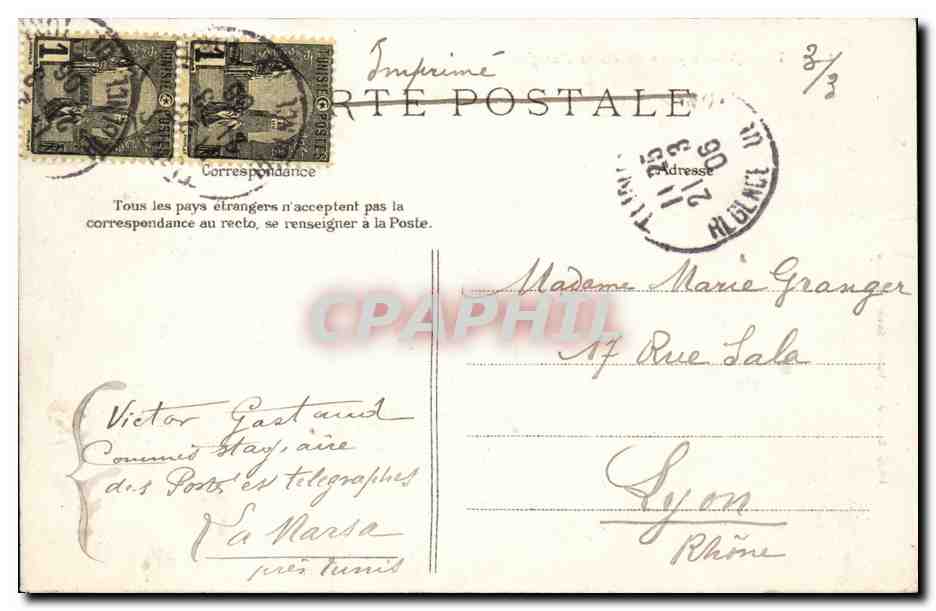 1 1
TUNISIE POSTES TUNISIE POSTES
Imprimé
3/3
RTE POSTALE
Correspondance
Adresse
11 25
21 3
06
REGENCE
Tous les pays étrangers n'acceptent pas la
correspondance au recto, se renseigner à la Poste.
CPAPHIL
Madame Marie Granger
17 Rue Sala
Lyon
Rhône
Victor Gastaud
Commis stagiaire
des Postes et telegraphes
La Marsa
près Tunis